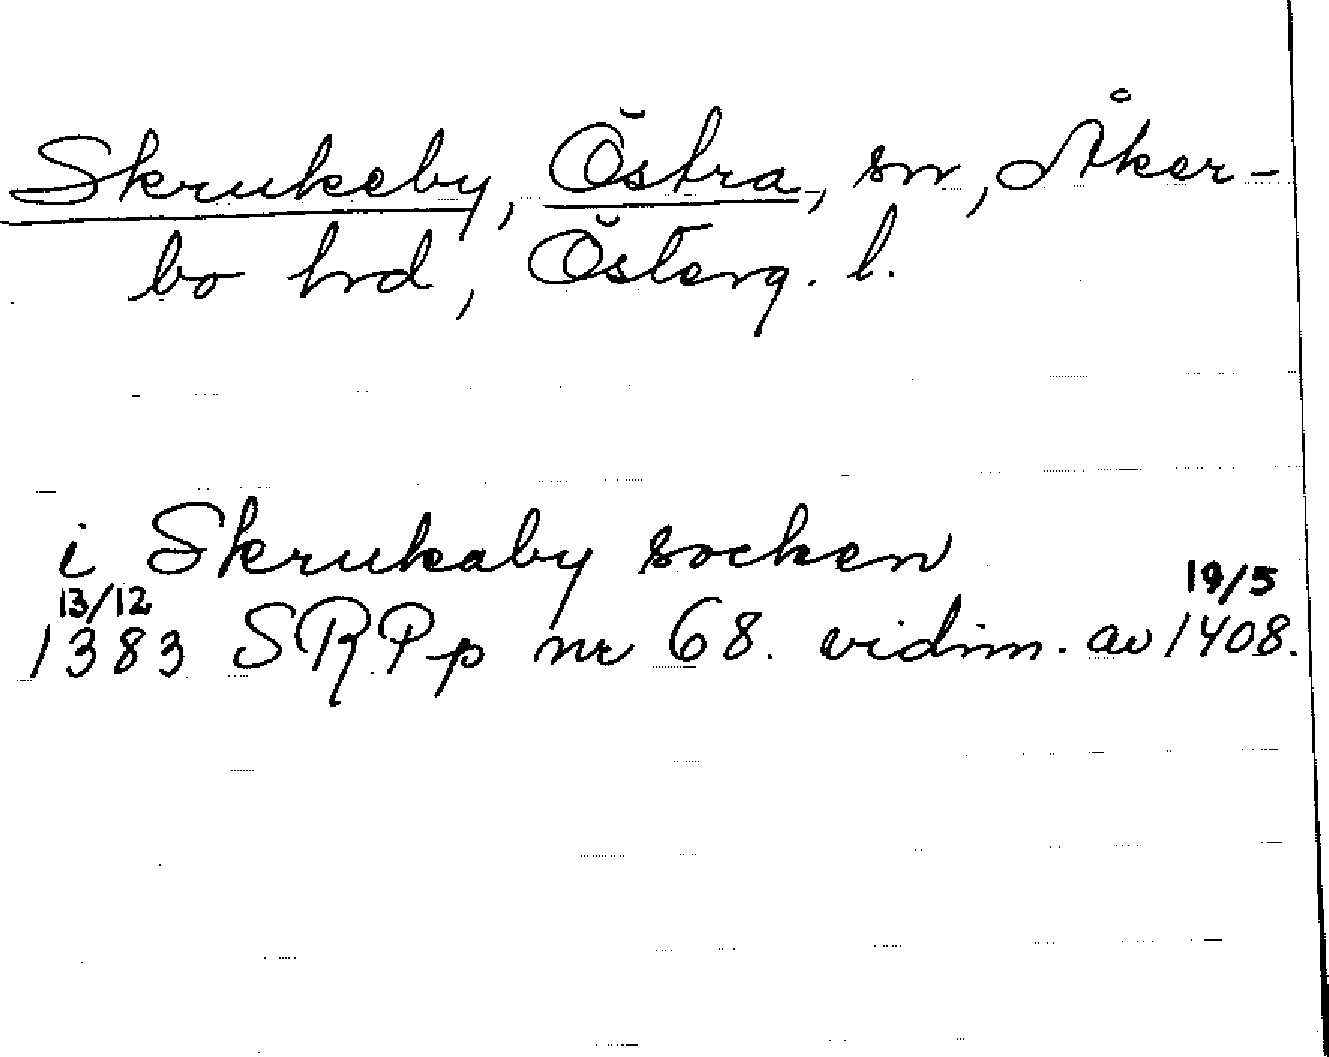 Skrukeby, Östra, sn, Åker-
bo hrd, Österg. l.
i Skrukaby socken
13/12 19/5
1383 SRPp nr 68. vidim. av 1408.